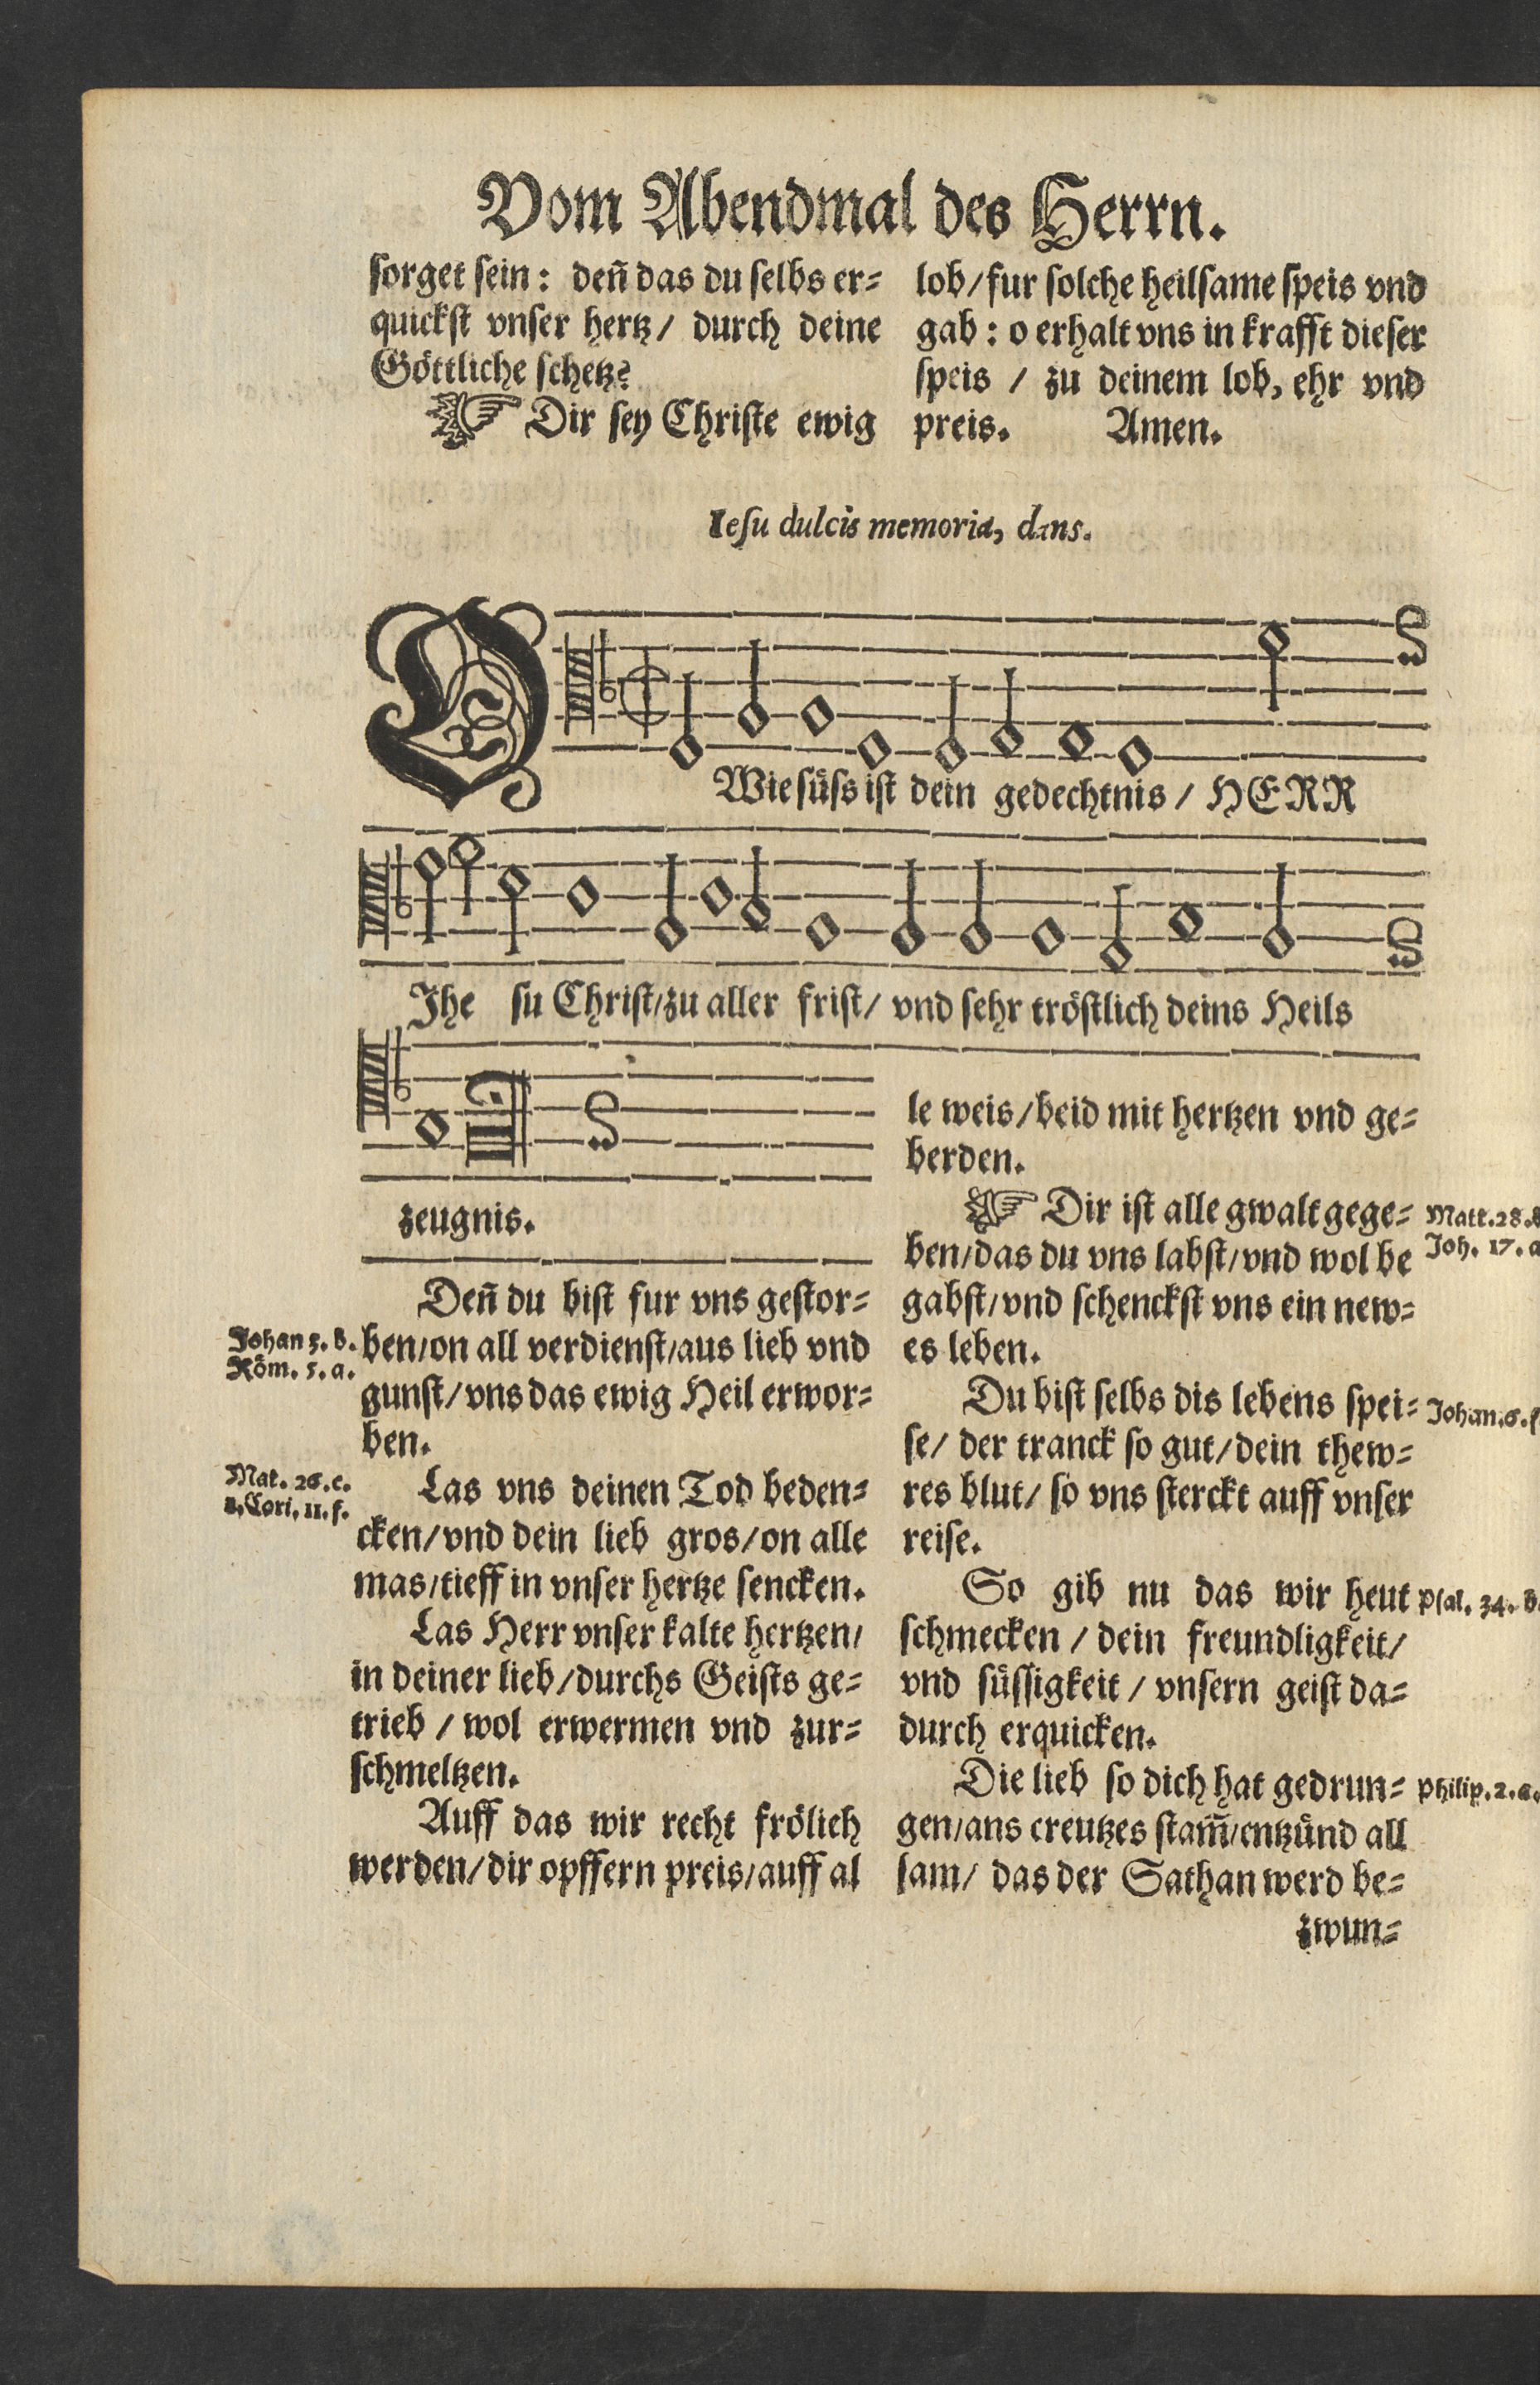 Vom Abendmal des Herrn.
sorget sein: deñ das du selbs er=
quickst vnser hertz/ durch deine
Göttliche schetz?
Dir sey Christe ewig
lob/fur solche heilsame speis vnd
gab: o erhalt vns in krafft dieser
speis / zu deinem lob, ehr vnd
preis. Amen.
Iesu dulcis memoria, dans.
O
Wie süss ist dein gedechtnis / HERR
Jhe su Christ/zu aller frist/ vnd sehr tröstlich deins Heils
zeugnis.
Deñ du bist fur vns gestor=
Johan 3. b.
Röm. 5. a.
ben/on all verdienst/aus lieb vnd
gunst/vns das ewig Heil erwor=
ben.
Mat. 26. c.
1. Cori. 11. f.
Las vns deinen Tod beden=
cken/vnd dein lieb gros/on alle
mas/tieff in vnser hertze sencken.
Las Herr vnser kalte hertzen/
in deiner lieb/durchs Geists ge=
trieb / wol erwermen vnd zur=
schmeltzen.
Auff das wir recht frölich
werden/dir opffern preis/auff al
le weis/beid mit hertzen vnd ge=
berden.
Dir ist alle gwalt gege=
Matt. 28.
Joh. 17. a
ben/das du vns labst/vnd wol be
gabst/vnd schenckst vns ein new=
es leben.
Du bist selbs dis lebens spei=
Johan. 6. f
se/ der tranck so gut/dein thew=
res blut/ so vns sterckt auff vnser
reise.
So gib nu das wir heut
Psal. 34. b.
schmecken / dein freundligkeit/
vnd süssigkeit / vnsern geist da=
durch erquicken.
Die lieb so dich hat gedrun=
Philip. 2. a.
gen/ans creutzes stam̃/entzünd all
sam/ das der Sathan werd be=
zwun=